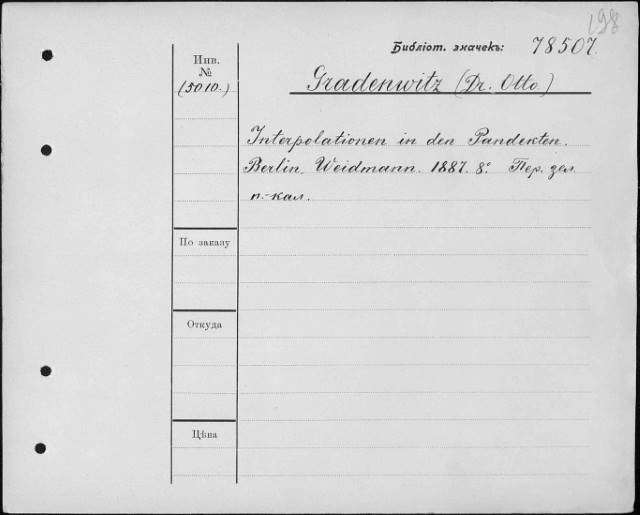 198
Библіот. значекъ: 78507.
Инв.
№
(5010.)
Gradenwitz (Dr. Otto.)
Interpolationen in den Pandekten.
Berlin. Weidmann. 1887. 8º. Пер. зел.
п.-кал.
По заказу
Откуда
Цѣна